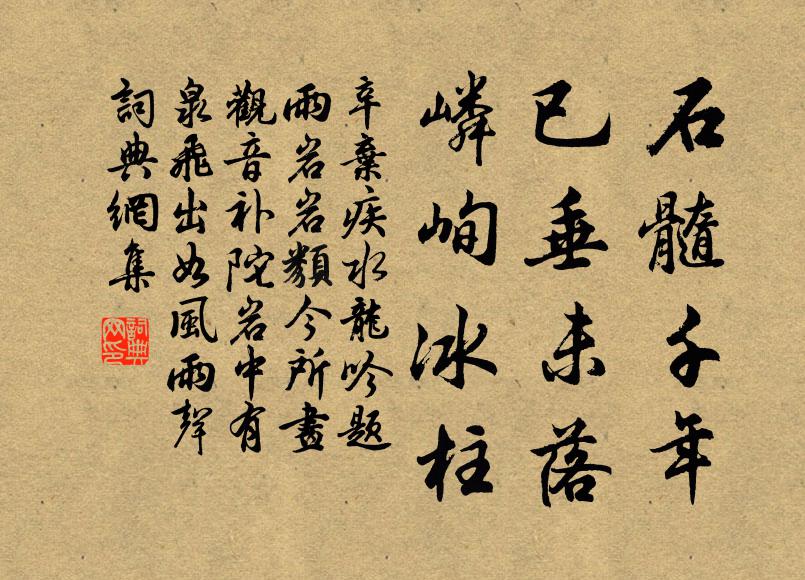 石髓千年
已垂未落
嶙峋冰柱
辛棄疾水龍吟题
雨岩岩類今所畫
觀音补陀岩中有
泉飛出如風雨聲
詞典網集
詞典
网印